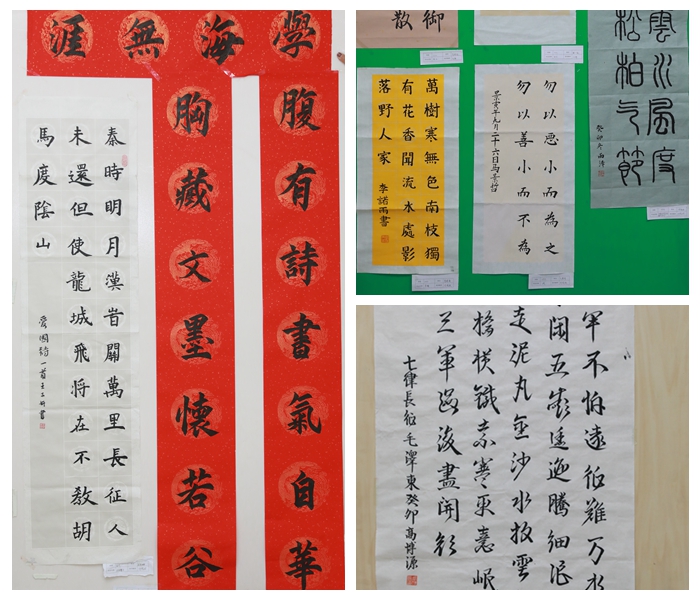 學海無涯
腹有詩書氣自華
胸藏文墨懷若谷
秦時明月漢旹關萬里長征人
未還但使龍城飛將在不教胡
馬度陰山
愛國詩一首
御
散
萬樹寒無色南枝獨
有花香聞流水處影
落野人家
李諾雨書
勿以惡小而為之
勿以善小而不為
年九月二十六日馬景哲
雲水風度
松柏气節
癸卯冬
軍不怕遠征難万水
閑五嶺逶迤騰細浪
走泥丸金沙水拍雲
橋橫鐵索寒更喜岷
三軍過後盡開顏
七律長征毛澤東癸卯高博源